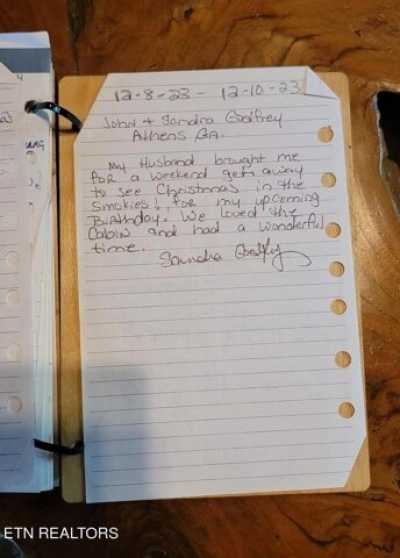 12-8-23 - 12-10-23
John + Sandra Godfrey
Athens GA.
My Husband brought me
for a weekend get away
to see Christmas in the
Smokies & for my upcoming
Birthday. We loved the
Cabin and had a wonderful
time.
Sandra Godfrey
ETN REALTORS